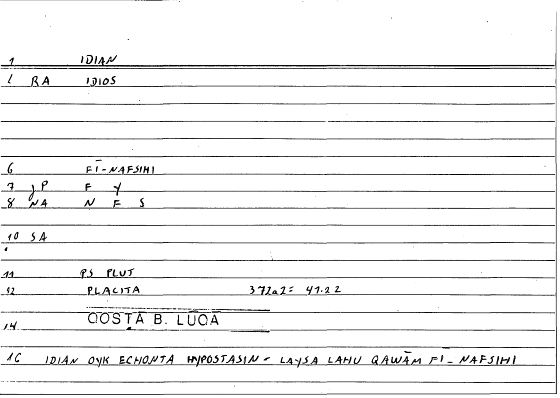 1 IDIAN
2 RA IDIOS
6 FĪ-NAFSIHI
7 JP F Y
8 NA N F S
10 SA
11 PS PLUT
12 PLACITA 372a2= 41.22
14 QOSTĀ B. LUQA
16 IDIAN OYK ECHONTA HYPOSTASIN - LAYSA LAHU QAWĀM FĪ-NAFSIHI